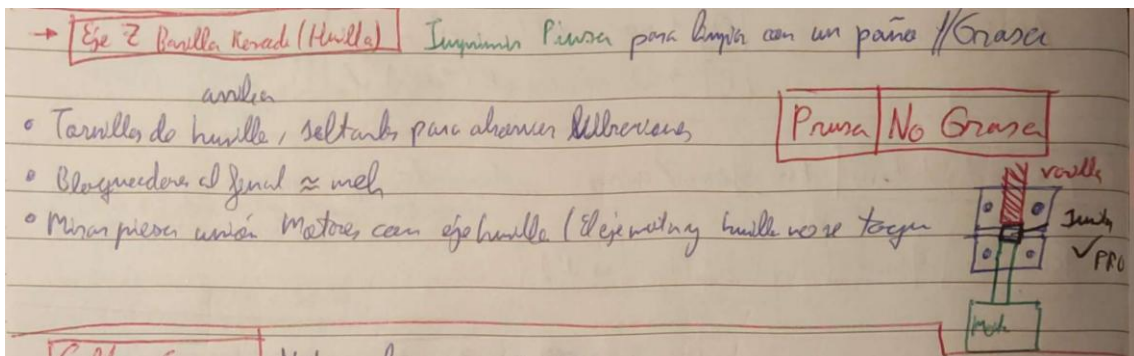 → Eje Z Barilla Roscada (Husillo) Imprimir Pinza para limpiar con un paño // Grasa
arriba
• Tornillos de husillo, soltarlos para absorver
Prusa No Grasa
• Bloqueadores al final ≈ meh
• Mirar piezas unión Motores con eje husillo (El eje motor y husillo no se toquen
varilla
Junta
✓ PRO
Motor